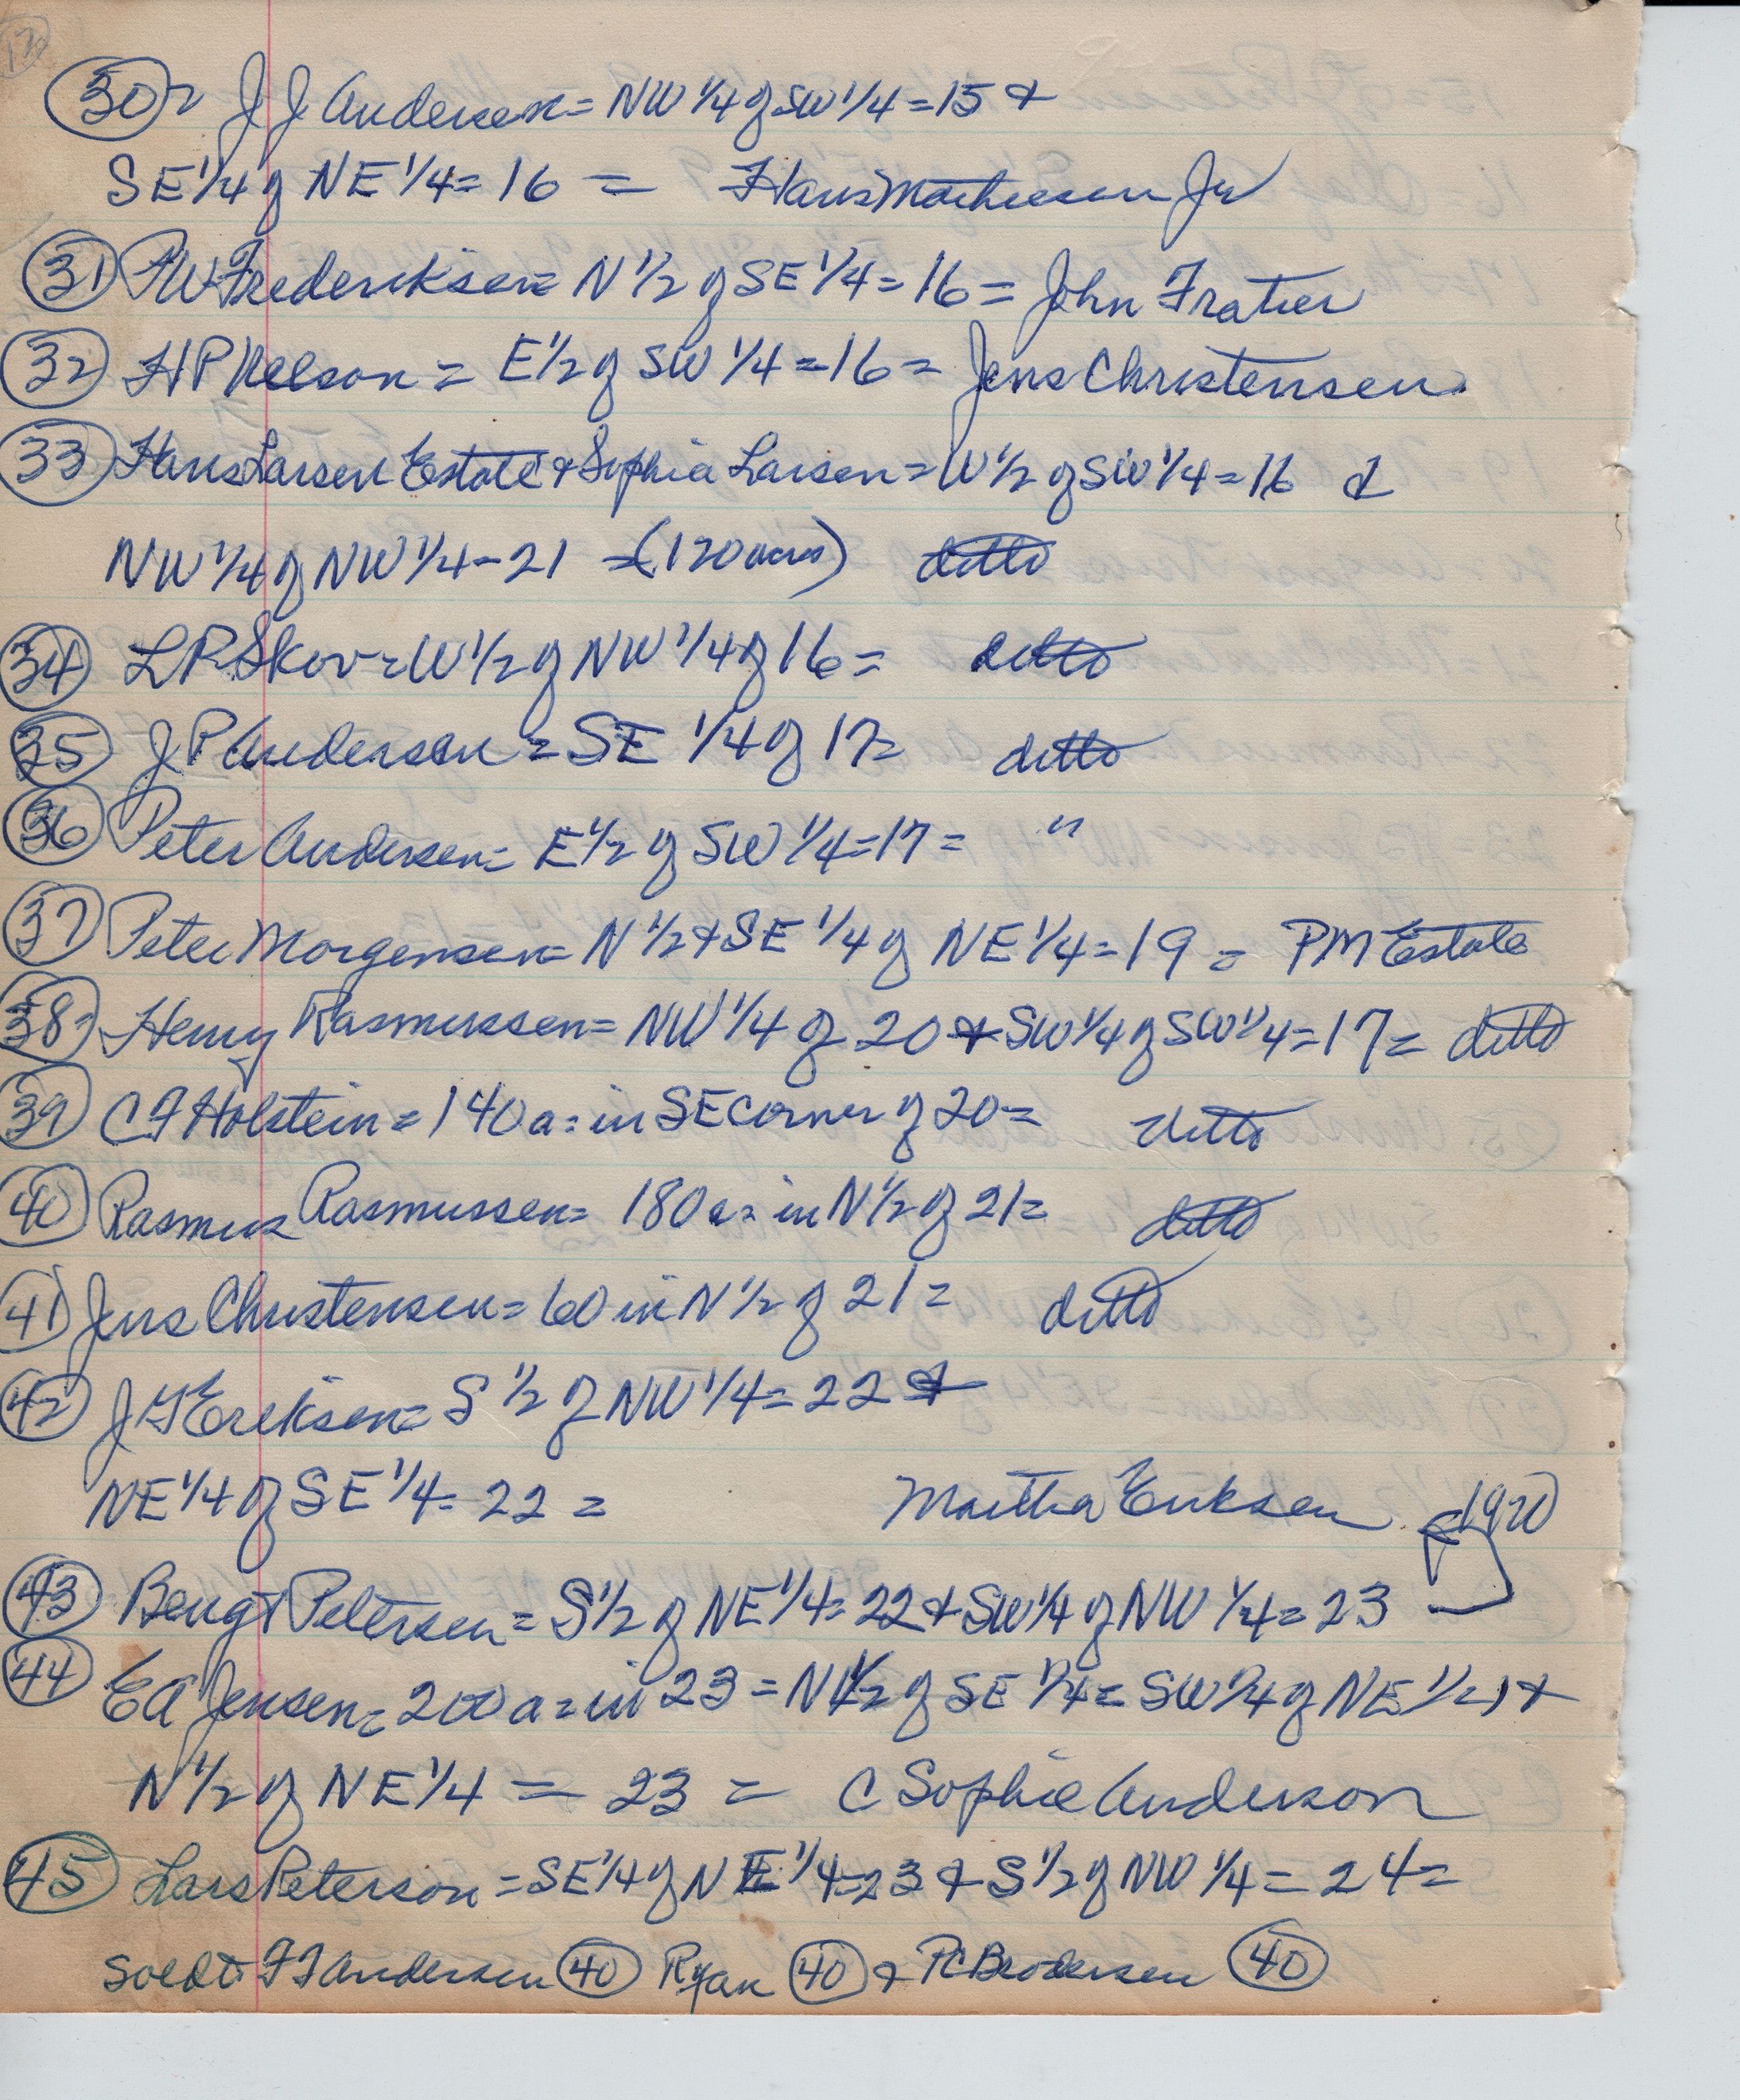 12
30 = J J Andersen = NW 1/4 of SW 1/4 = 15 &
SE 1/4 of NE 1/4 = 16 = Hans Mathiesen Jr
31 PW Frederiksen = N 1/2 of SE 1/4 = 16 = John Fratier
32 HP Nelson = E 1/2 of SW 1/4 = 16 = Jens Christensen
33 Hans Larsen Estate & Sophia Larsen = W 1/2 of SW 1/4 = 16 &
NW 1/4 of NW 1/4 - 21 = (120 acres) ditto
34 LP Skov = W 1/2 of NW 1/4 of 16 = ditto
35 J P Andersen = SE 1/4 of 17 = ditto
36 Peter Andersen = E 1/2 of SW 1/4 = 17 = "
37 Peter Morgensen = N 1/2 & SE 1/4 of NE 1/4 = 19 = PM Estate
38 = Henry Rasmussen = NW 1/4 of 20 & SW 1/4 of SW 1/4 = 17 = ditto
39 CF Holstein = 140 a = in SE corner of 20 = ditto
40 Rasmus Rasmussen = 180 a = in N 1/2 of 21 = ditto
41 Jens Christensen = 60 in N 1/2 of 21 = ditto
42 J Eriksen = S 1/2 of NW 1/4 = 22 &
NE 1/4 of SE 1/4 = 22 = Martha Eriksen 1920
43 Bengt Petersen = S 1/2 of NE 1/4 = 22 & SW 1/4 of NW 1/4 = 23
44 EA Jensen = 200 a = in 23 = N 1/2 of SE 1/4 = SW 1/4 of NE 1/4 &
N 1/2 of NE 1/4 = 23 = C Sophie Anderson
45 Lars Peterson = SE 1/4 of NE 1/4 = 23 & S 1/2 of NW 1/4 = 24 =
Andersen 40 Ryan 40 & PC Brodersen 40